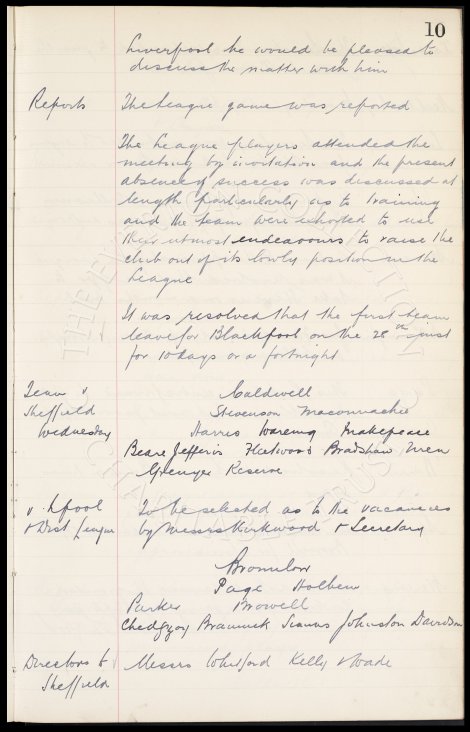 10
Liverpool he would be pleased to
discuss the matter with him
Reports The League game was reported
The League players attended the
meeting by invitation and the present
absence of success was discussed at
length particularly as to training
and the team were exhorted to use
their utmost endeavours to raise the
club out of its lowly position in the
League
It was resolved that the first team
leave for Blackpool on the 28th inst
for 10 days or a fortnight
Team v Caldwell
Sheffield Stevenson Maconnachie
Wednesday Harris Wareing Makepeace
Beare Jefferis Fleetwood Bradshaw Wren
Grenyer Reserve
v L'pool To be selected as to the vacancies
& Dist League by Messrs Kirkwood & Secretary
Bromilow
Page Holbem
Parker Browell
Chedgzoy Brannick Johnston Davidson
Directors to Messrs Whitford Kelly & Wade
Sheffield